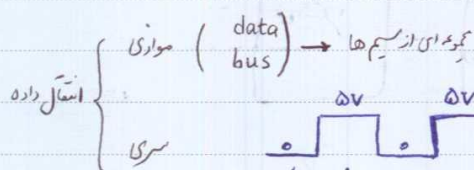 انتقال داده
موازی ( data bus ) → مجموعه ای از سیم ها
سری
۰ ۵V ۰ ۵V